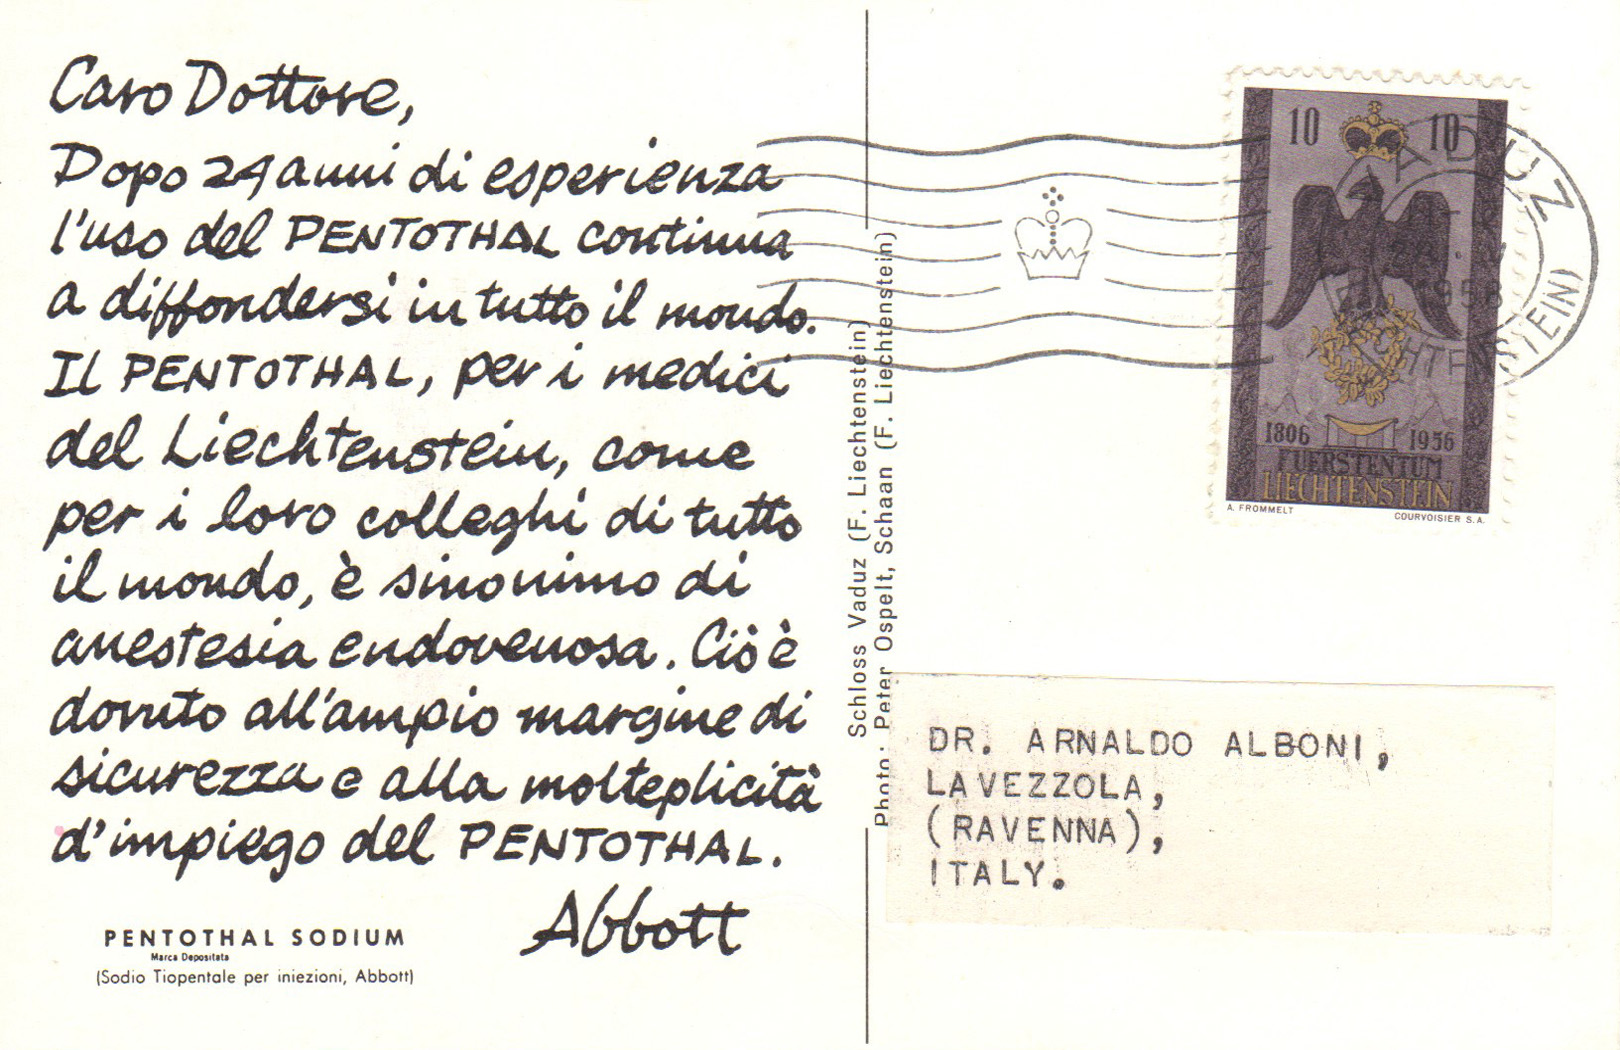 Caro Dottore,
Dopo 24 anni di esperienza
l'uso del PENTOTHAL continua
a diffondersi in tutto il mondo.
Il PENTOTHAL, per i medici
del Liechtenstein, come
per i loro colleghi di tutto
il mondo, è sinonimo di
anestesia endovenosa. Ciò è
dovuto all'ampio margine di
sicurezza e alla molteplicità
d'impiego del PENTOTHAL.
Abbott
PENTOTHAL SODIUM
Marca Depositata
(Sodio Tiopentale per iniezioni, Abbott)
Schloss Vaduz (F. Liechtenstein)
Photo: Peter Ospelt, Schaan (F. Liechtenstein)
10 10
1806 1956
FUERSTENTUM
LIECHTENSTEIN
A. FROMMELT COURVOISIER S.A.
VADUZ
1958
LIECHTENSTEIN)
DR. ARNALDO ALBONI,
LAVEZZOLA,
(RAVENNA),
ITALY.